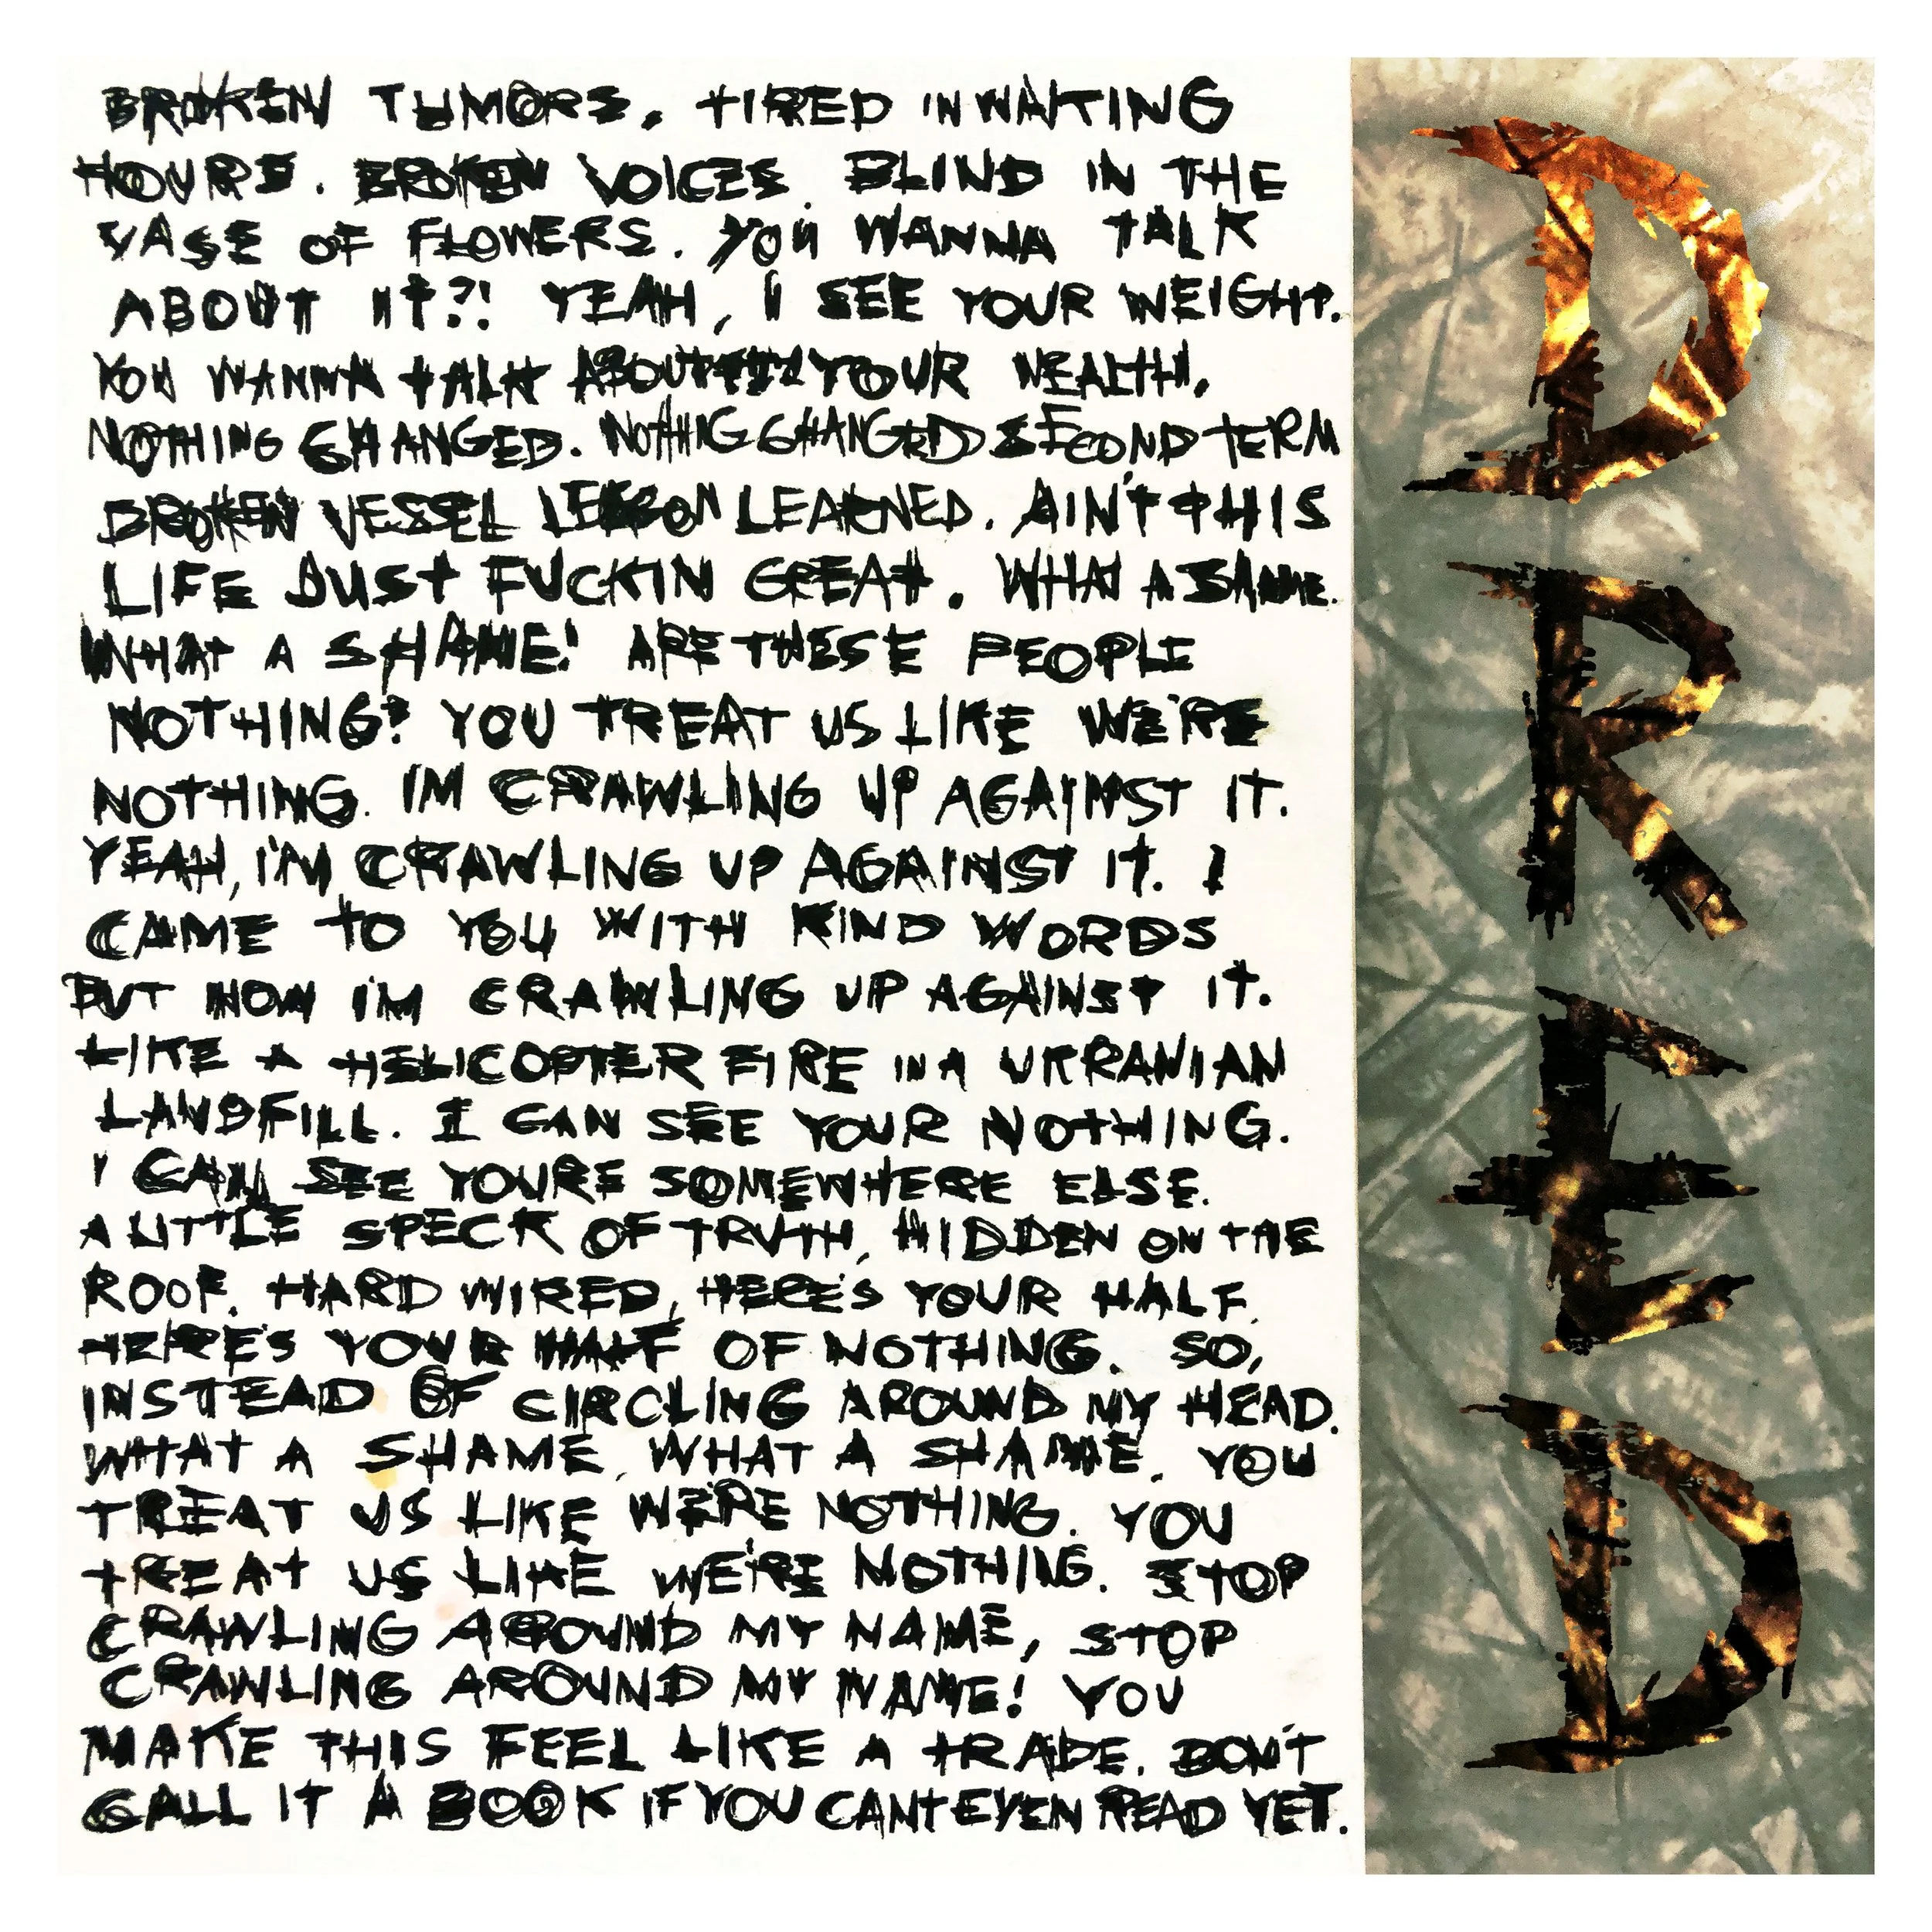 BROKEN TUMORS, TIRED IN WAITING
HOURS. BROKEN VOICES. BLIND IN THE
VASE OF FLOWERS. YOU WANNA TALK
ABOUT IT?! YEAH, I SEE YOUR WEIGHT.
YOU WANNA TALK ABOUT YOUR WEALTH,
NOTHING CHANGED. NOTHIG CHANGED SECOND TERM
BROKEN VESSEL LESSON LEARNED. AIN'T THIS
LIFE JUST FUCKIN GREAT. WHAT A SHAME.
WHAT A SHAME! ARE THESE PEOPLE
NOTHING? YOU TREAT US LIKE WE'RE
NOTHING. IM CRAWLING UP AGAINST IT.
YEAH, I'M CRAWLING UP AGAINST IT. I
CAME TO YOU WITH KIND WORDS
BUT NOW I'M CRAWLING UP AGAINST IT.
LIKE A HELICOPTER FIRE IN A UKRANIAN
LANDFILL. I CAN SEE YOUR NOTHING.
I CAN SEE YOURE SOMEWHERE ELSE.
A LITTLE SPECK OF TRUTH, HIDDEN ON THE
ROOF. HARD WIRED, HERE'S YOUR HALF.
HERE'S YOUR HALF OF NOTHING. SO,
INSTEAD OF CIRCLING AROUND MY HEAD.
WHAT A SHAME. WHAT A SHAME. YOU
TREAT US LIKE WE'RE NOTHING. YOU
TREAT US LIKE WE'RE NOTHING. STOP
CRAWLING AROUND MY NAME, STOP
CRAWLING AROUND MY NAME! YOU
MAKE THIS FEEL LIKE A TRADE. DON'T
CALL IT A BOOK IF YOU CANT EVEN READ YET.
DREAD